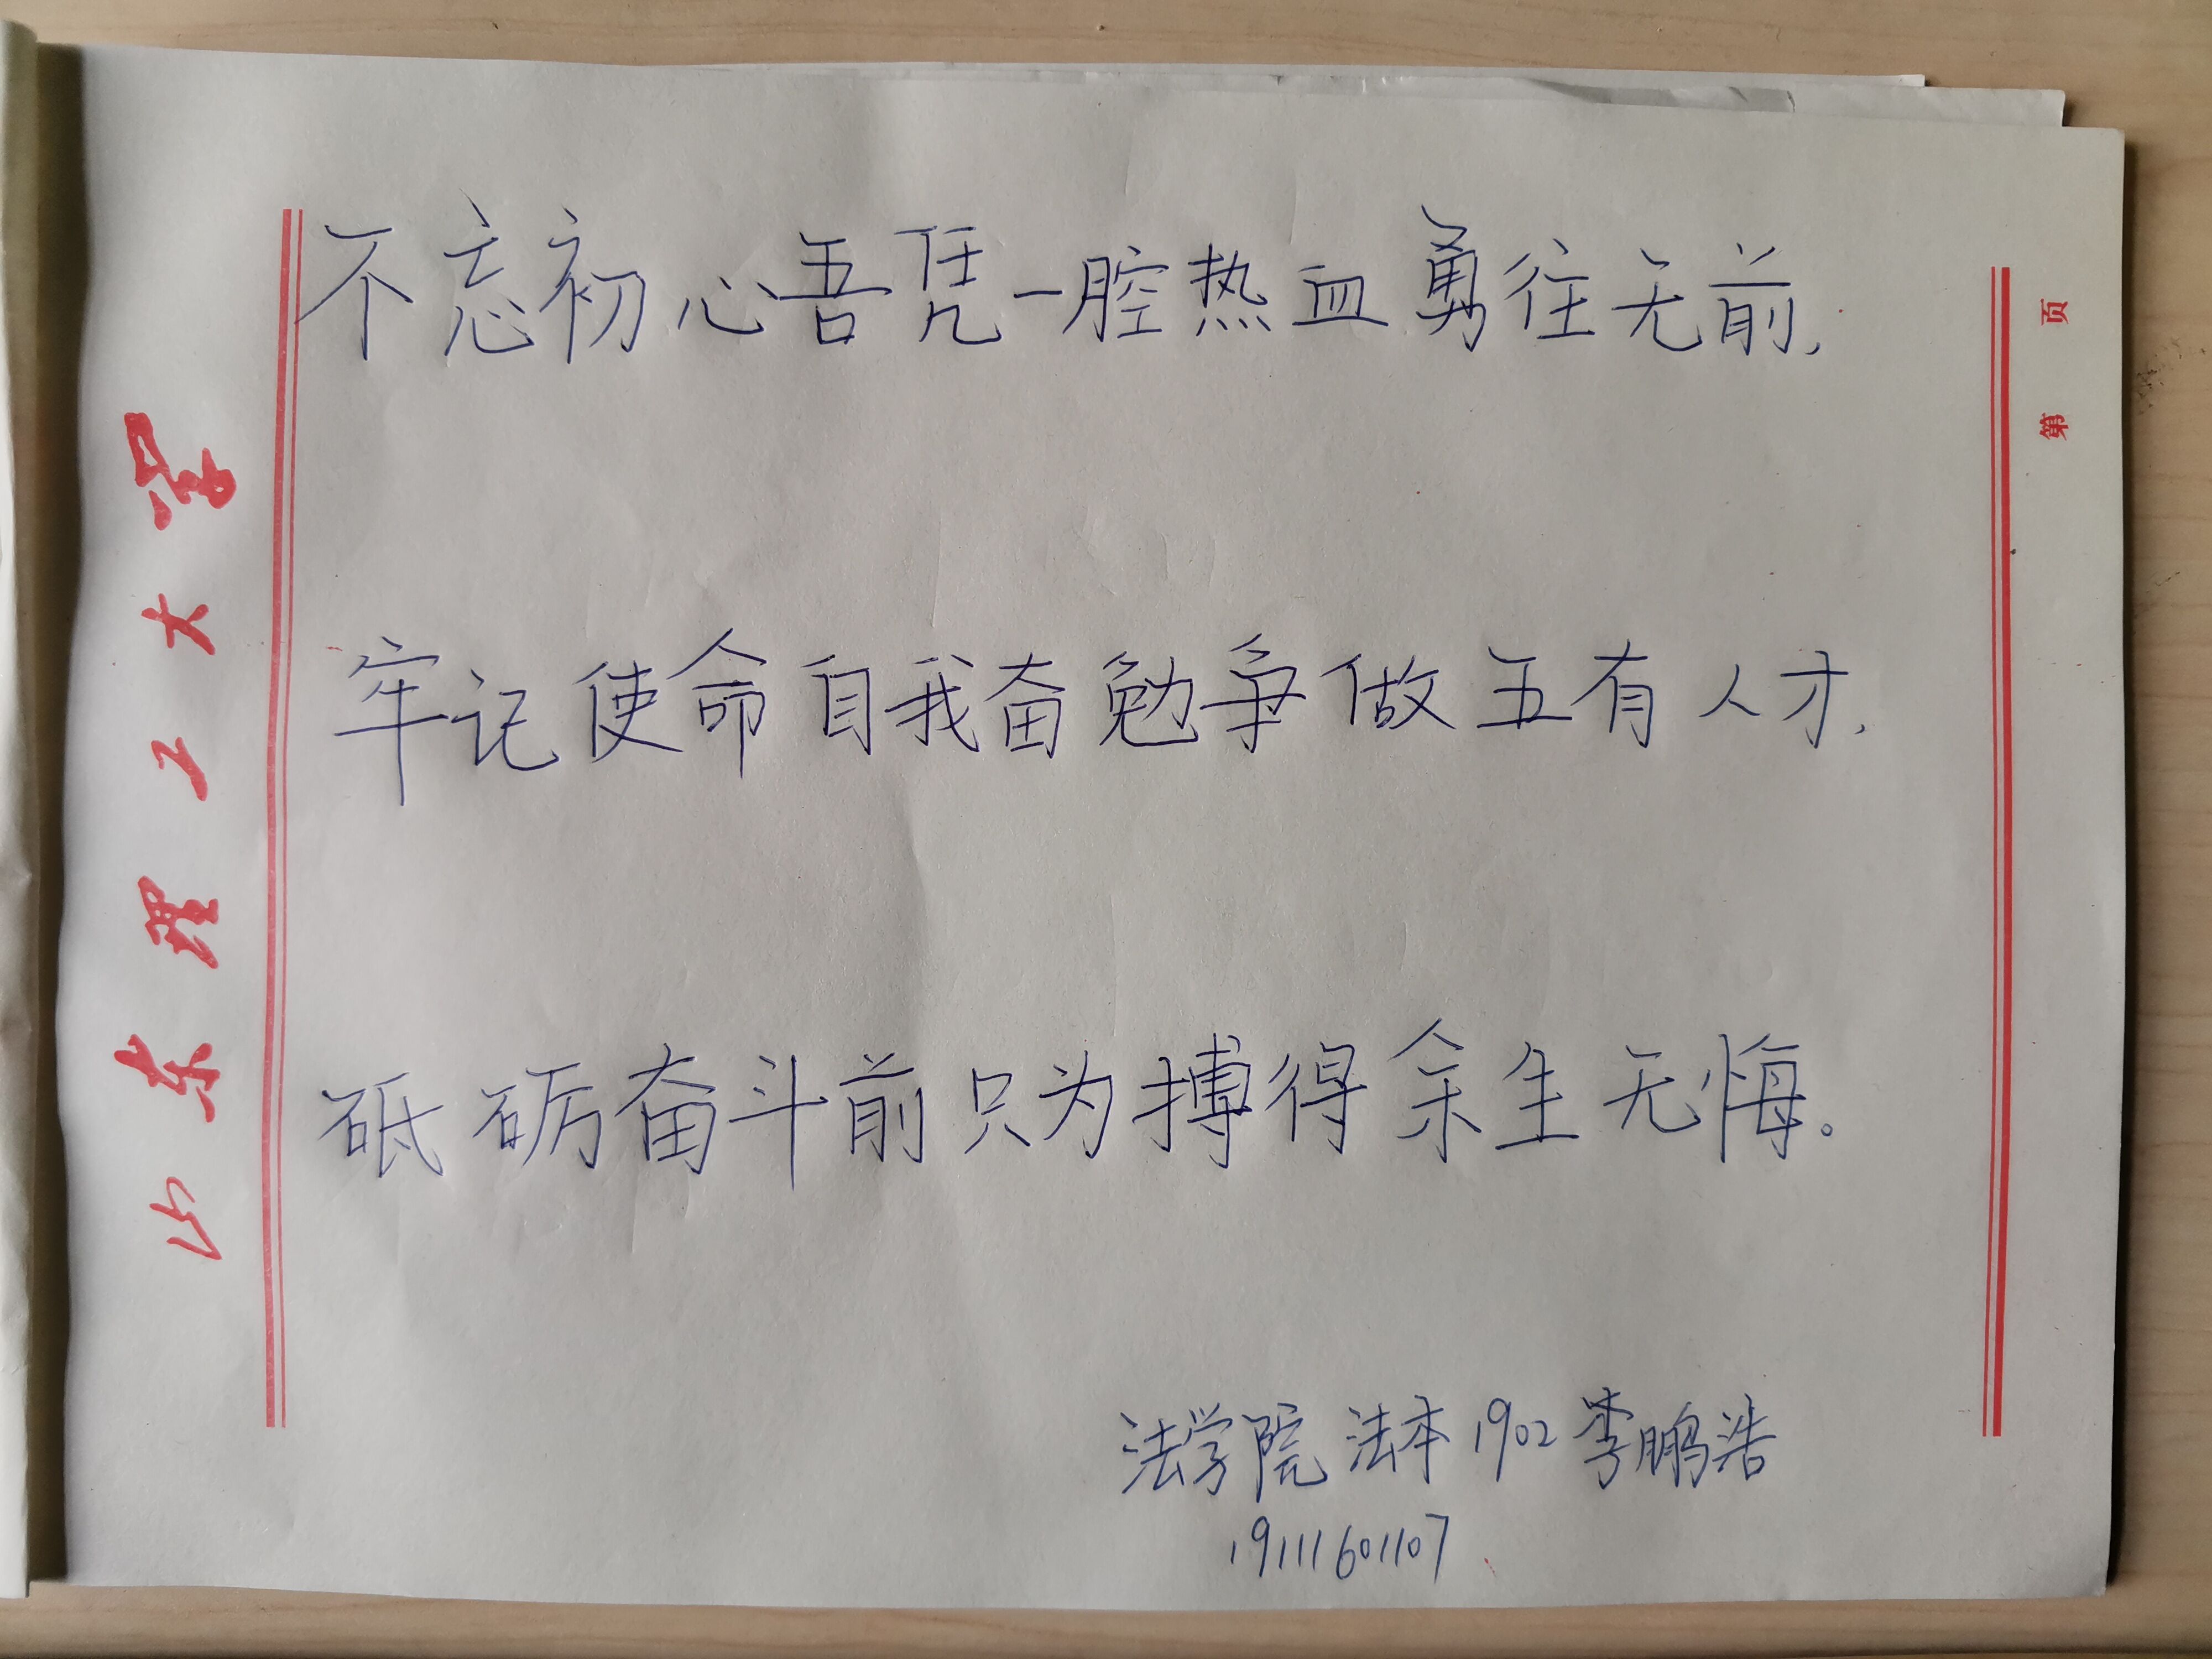 山东理工大学
不忘初心吾凭一腔热血勇往无前,
牢记使命自我奋勉争做五有人才,
砥砺奋斗前只为搏得余生无悔。
法学院 法本1902 李鹏浩
19111601107
第 页